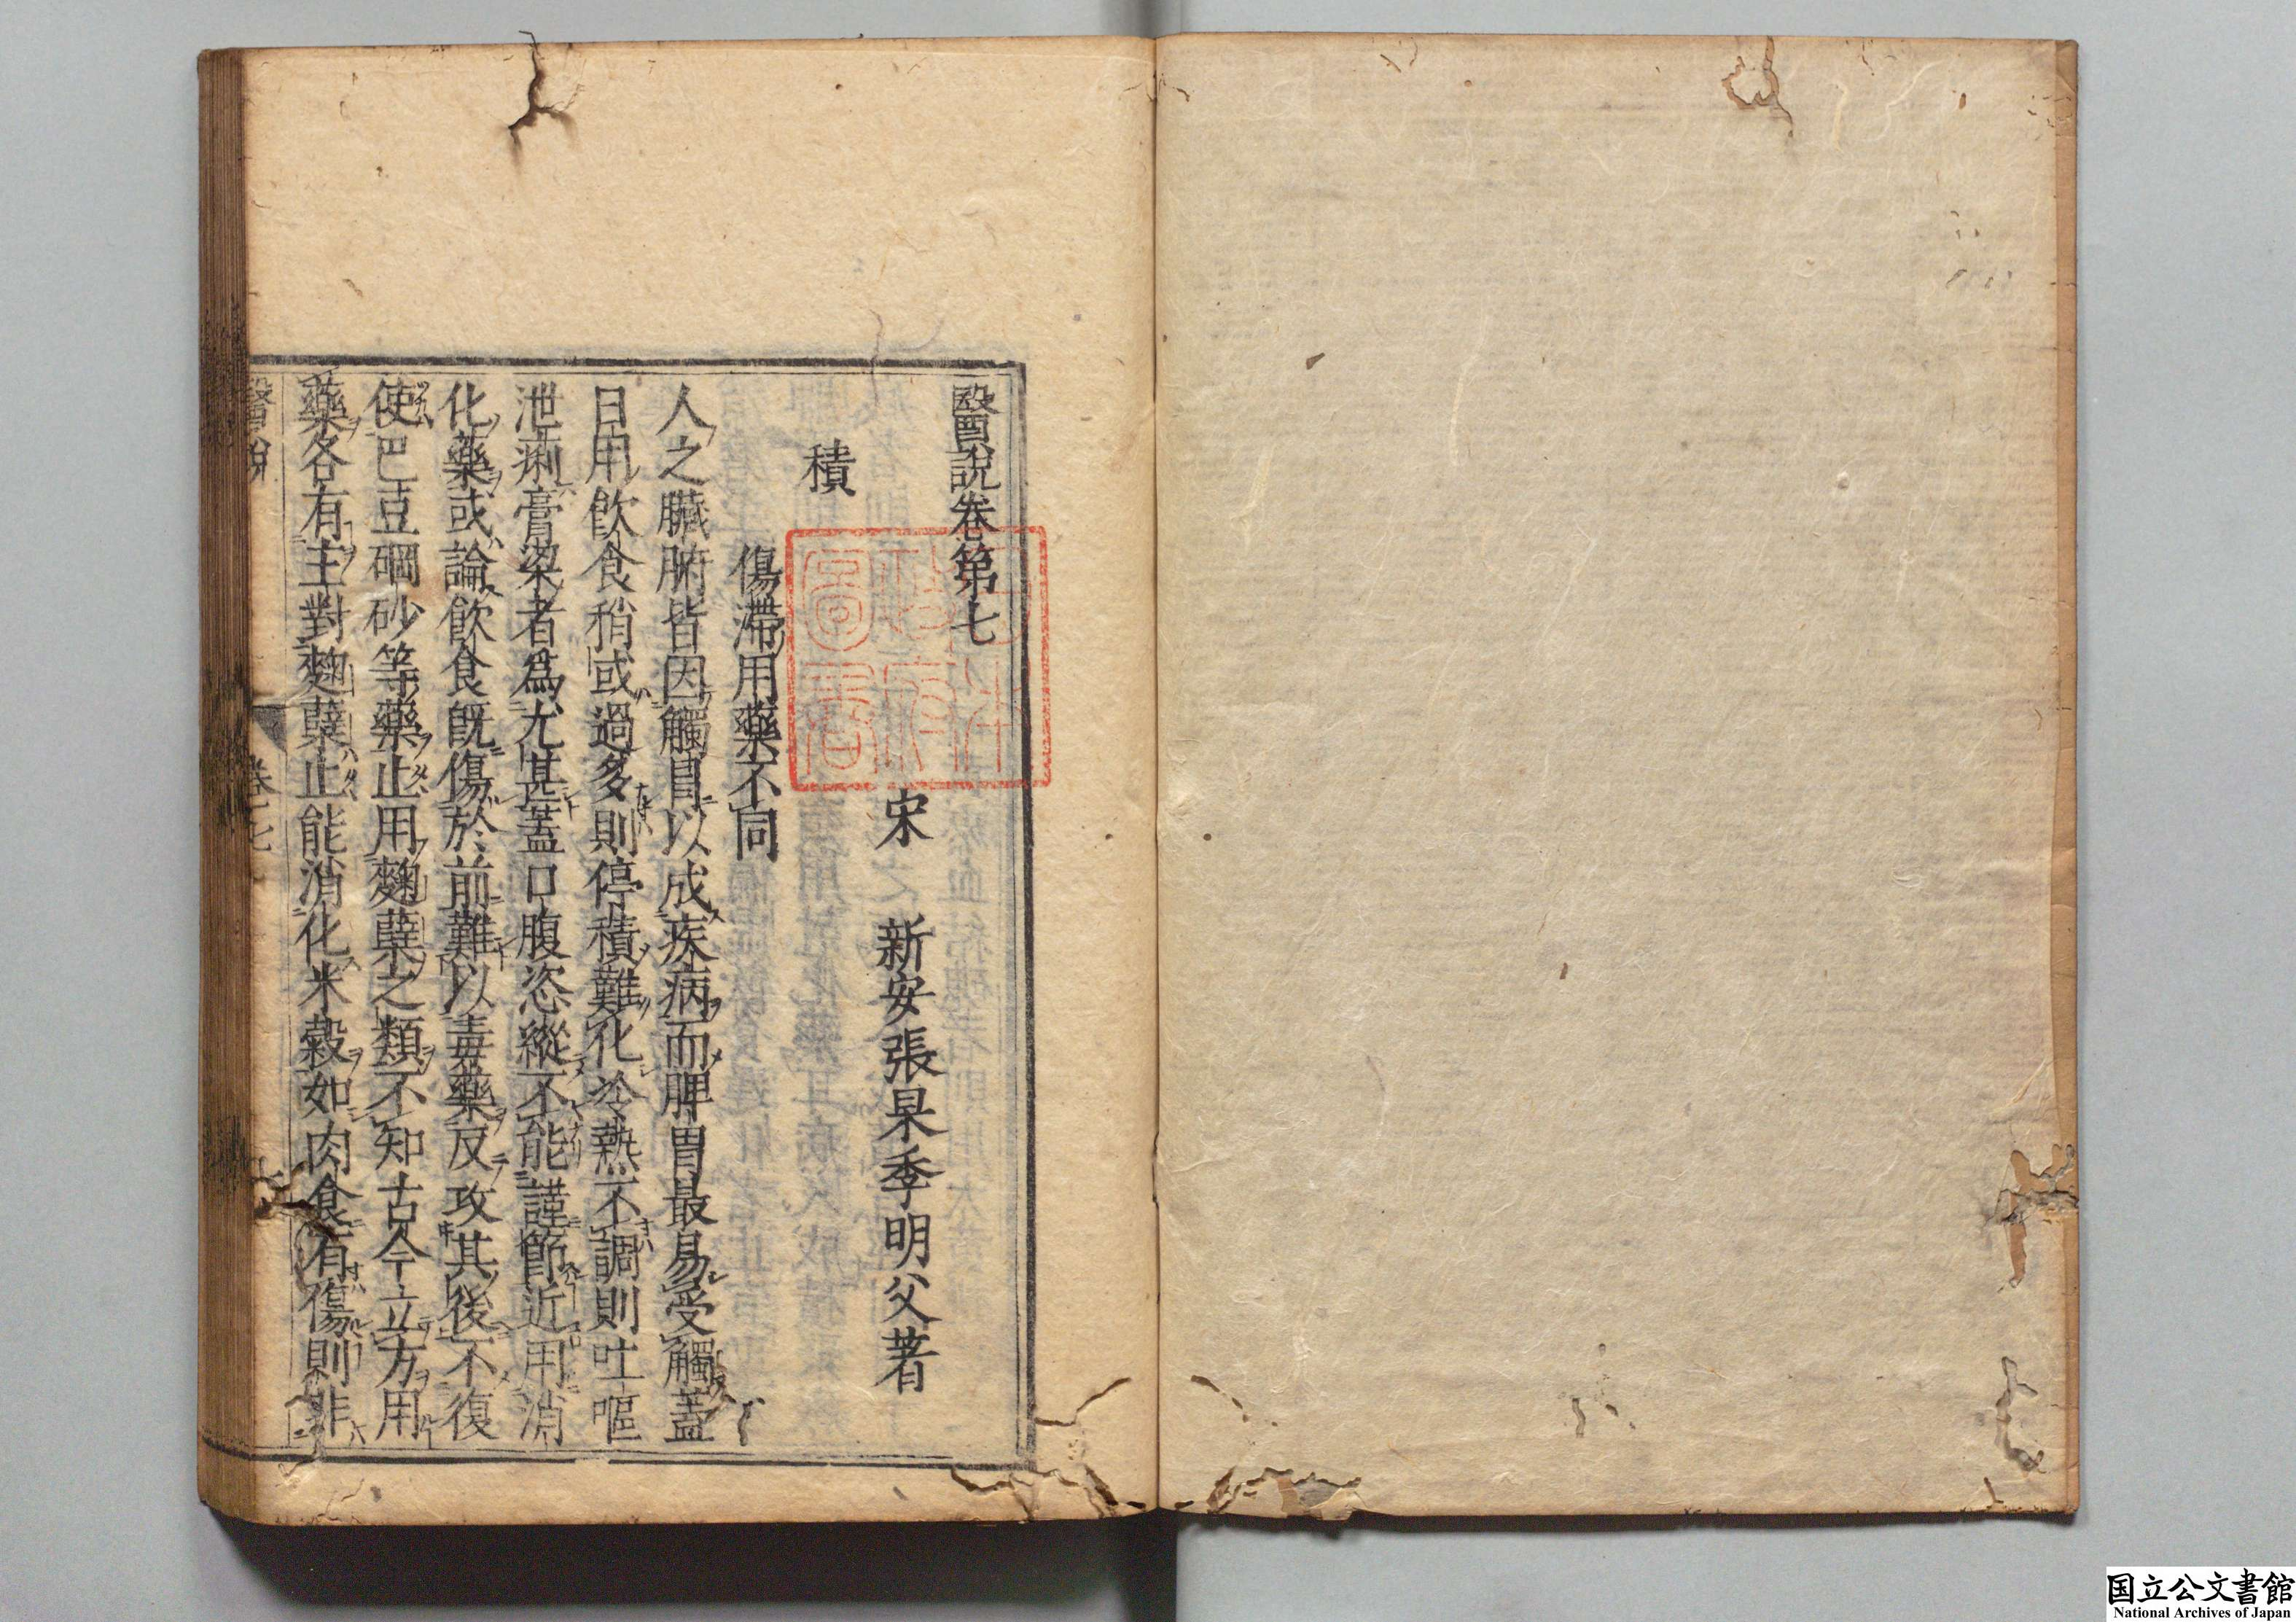 醫說卷第七
宋　新安張杲季明父著
積
傷滯用藥不同
人之臟腑皆因觸冒以成疾病而脾胃最易受觸蓋
日用飲食稍或過多則停積難化冷熱不調則吐嘔
泄痢膏粱者爲尤甚蓋口腹恣縱不能謹節近用消
化藥或論飲食旣傷於前難以毒藥反攻其後不復
使巴豆硇砂等藥止用麴蘖之類不知古今立方用
藥各有主對麴蘖止能消化米穀如肉食有傷則非
醫說
卷之七
国立公文書館
National Archives of Japan